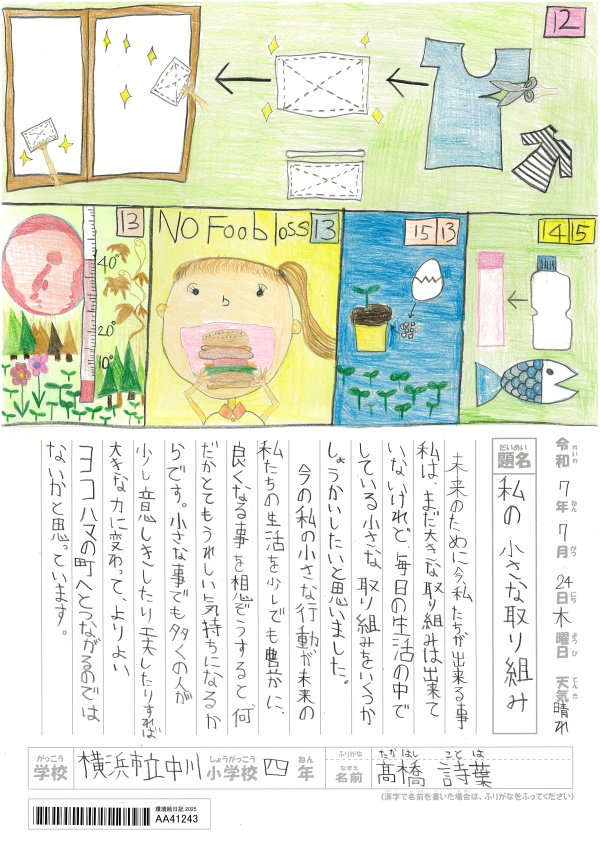 12
13
40°
20°
10°
NO Foob loss
13
15 13
14 15
令和7年7月24日木曜日 天気晴れ
れいわ ねん がつ にち ようび てんき
だいめい
題名
私の小さな取り組み
未来のために今、私たちが出来る事
私は、まだ大きな取り組みは出来て
いないけれど、毎日の生活の中で
している小さな取り組みをいくつか
しょうかいしたいと思いました。
今の私の小さな行動が未来の
私たちの生活を少しでも豊かに、
良くなる事を想ぞうすると何
だかとてもうれしい気持ちになるか
らです。小さな事でも多くの人が
少し意しきしたり工夫したりすれば
大きな力に変わって、よりよい
ヨコハマの町へとつながるのでは
ないかと思っています。
がっこう しょうがっこう ねん
学校 横浜市立中川小学校 四年
ふりがな たかはし ことは
なまえ
名前 髙橋 詩葉
(漢字で名前を書いた場合は、ふりがなをふってください)
環境絵日記2025
AA41243